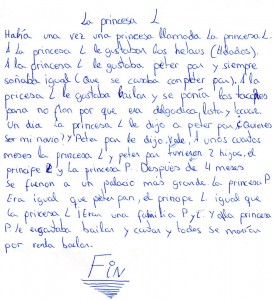 La princesa L
Había una vez una princesa llamada La princesa L.
A la princesa L le gustaban los helaus (Helados).
A la princesa L le gustaba peter pan y siempre
soñaba igual (que se casaba con peter pan). A la
princesa L le gustaba bailar y se ponía los tacones
para no por que era delgadica, lista y
Un dia la princesa L le dijo a peter pan ¿Quieres
ser mi novio? y Peter pan le dijo, vale, a unos cuantos
meses la princesa L y peter pan tuvieron 2 hijos, el
principe L y la princesa P. Después de 4 meses
Se fueron a un palacio más grande. La princesa P
Era igual que peter pan, el principe L igual que
la princesa L ¡Eran una familia P y L. Y a la princesa
P le encantaba bailar y cantar y todos se movían
por verla bailar.
FIN